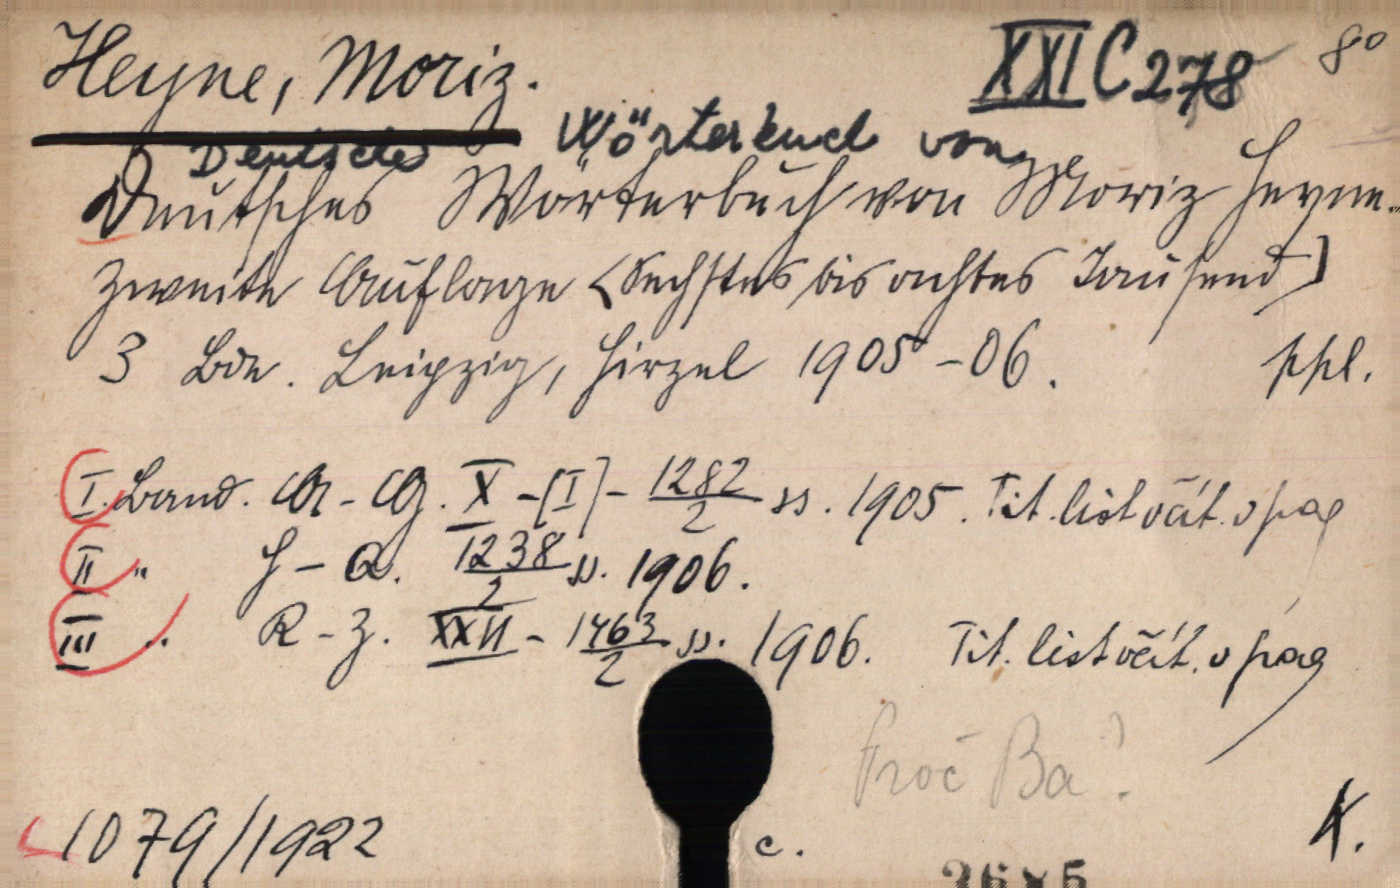 Heyne, Moriz.
XXI C 278
8°
Deutsches Wörterbuch von
Deutsches Wörterbuch von Moriz Heyne.
Zweite Auflage (Sechstes bis achtes Tausend)
3 Bde. Leipzig, Hirzel 1905-06. ppl.
I. Band. A-G. X-[I]-1282/2 ss. 1905. Tit. list včít. v pag
II " H-Q. 1238/2 ss. 1906.
III " R-Z. XXII-1463/2 ss. 1906. Tit. list včít. v pag
Proč Ba?
1079/1922
c.
K.